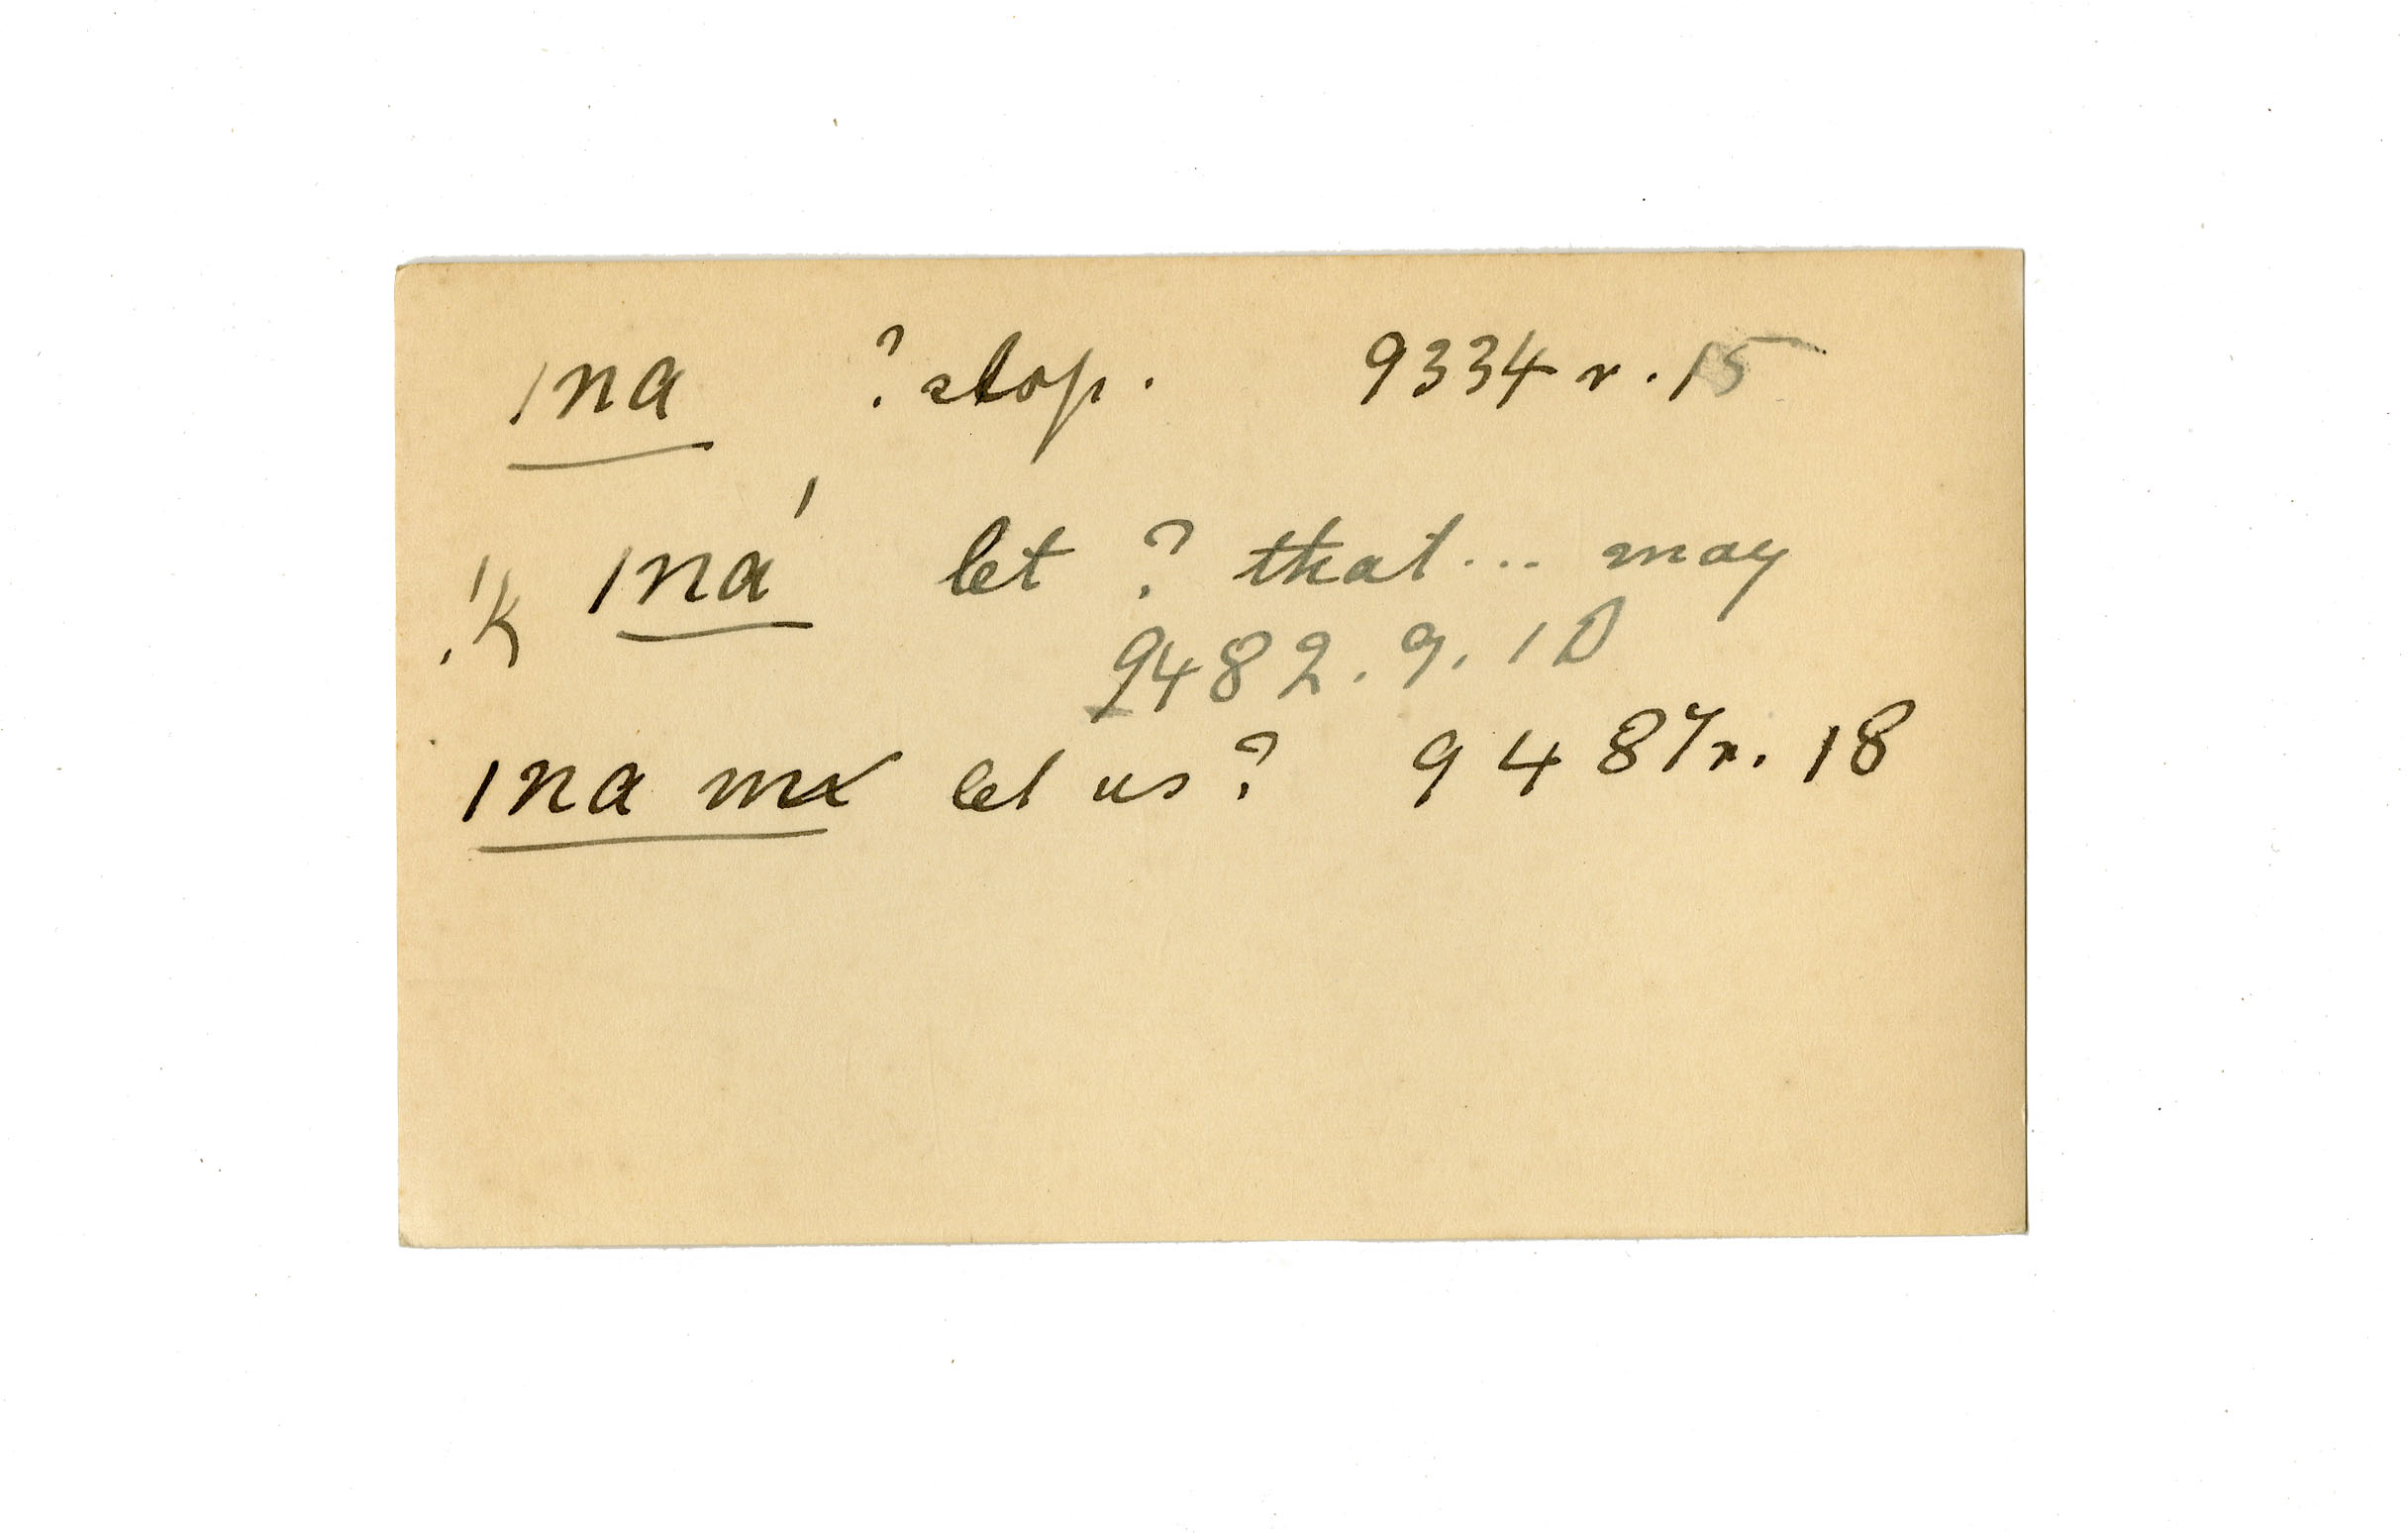 ına ?stop. 9334 r. 15
.'k ına' let ? that... may
9482. 9. 10
ına mx let us? 9487r. 18